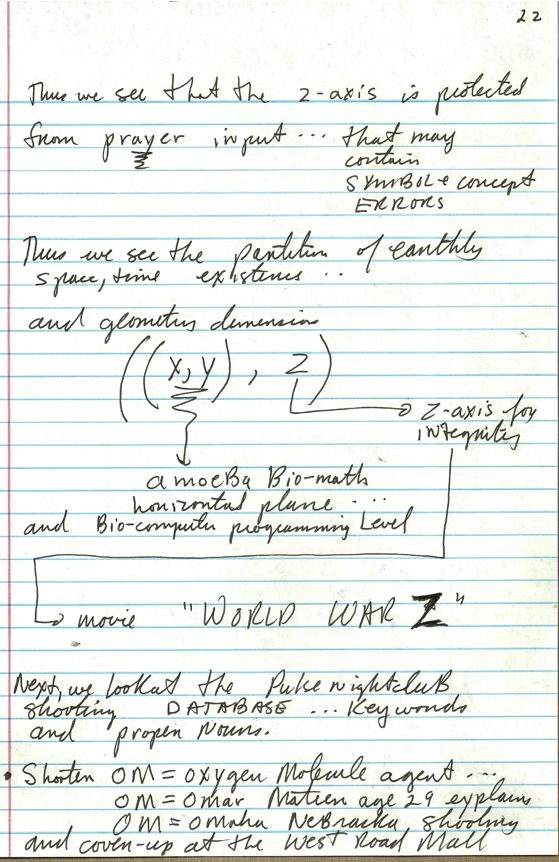 22
Thus we see that the z-axis is protected
from prayer input ... that may
contain
SYMBOL + concept
ERRORS
Thus we see the partition of earthly
space, time existence ..
and geometry dimension
((x, y), Z)
Z-axis for
integrity
amoeBa Bio-math
horizontal plane ...
and Bio-computer programming Level
movie "WORLD WAR Z"
Next, we look at the Pulse nightcluB
shooting DATABASE ... Keywords
and proper Nouns.
• Shorten OM = oxygen Molecule agent ...
OM = Omar Mateen age 29 explains
OM = Omaha NeBraska shooting
and cover-up at the West Road Mall